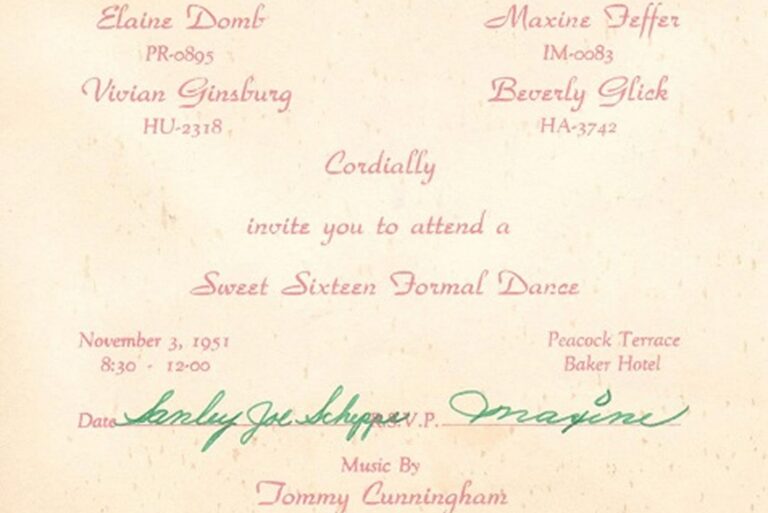 Elaine Domb Maxine Feffer
PR-0895 IM-0083
Vivian Ginsburg Beverly Glick
HU-2318 HA-3742
Cordially
invite you to attend a
Sweet Sixteen Formal Dance
November 3, 1951 Peacock Terrace
8:30 - 12:00 Baker Hotel
Date Sanley Joe R.S.V.P. Maxine
Music By
Tommy Cunningham